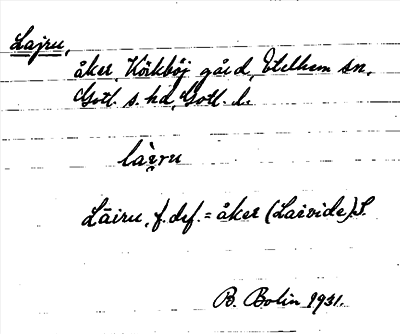 Lajru,
åker, Körkböj gård, Etelhem sn,
Gotl. s. hd, Gotl. l.
làiru
Lāiru, f. def. = åker (Laivide) S.
B. Bolin 1931.